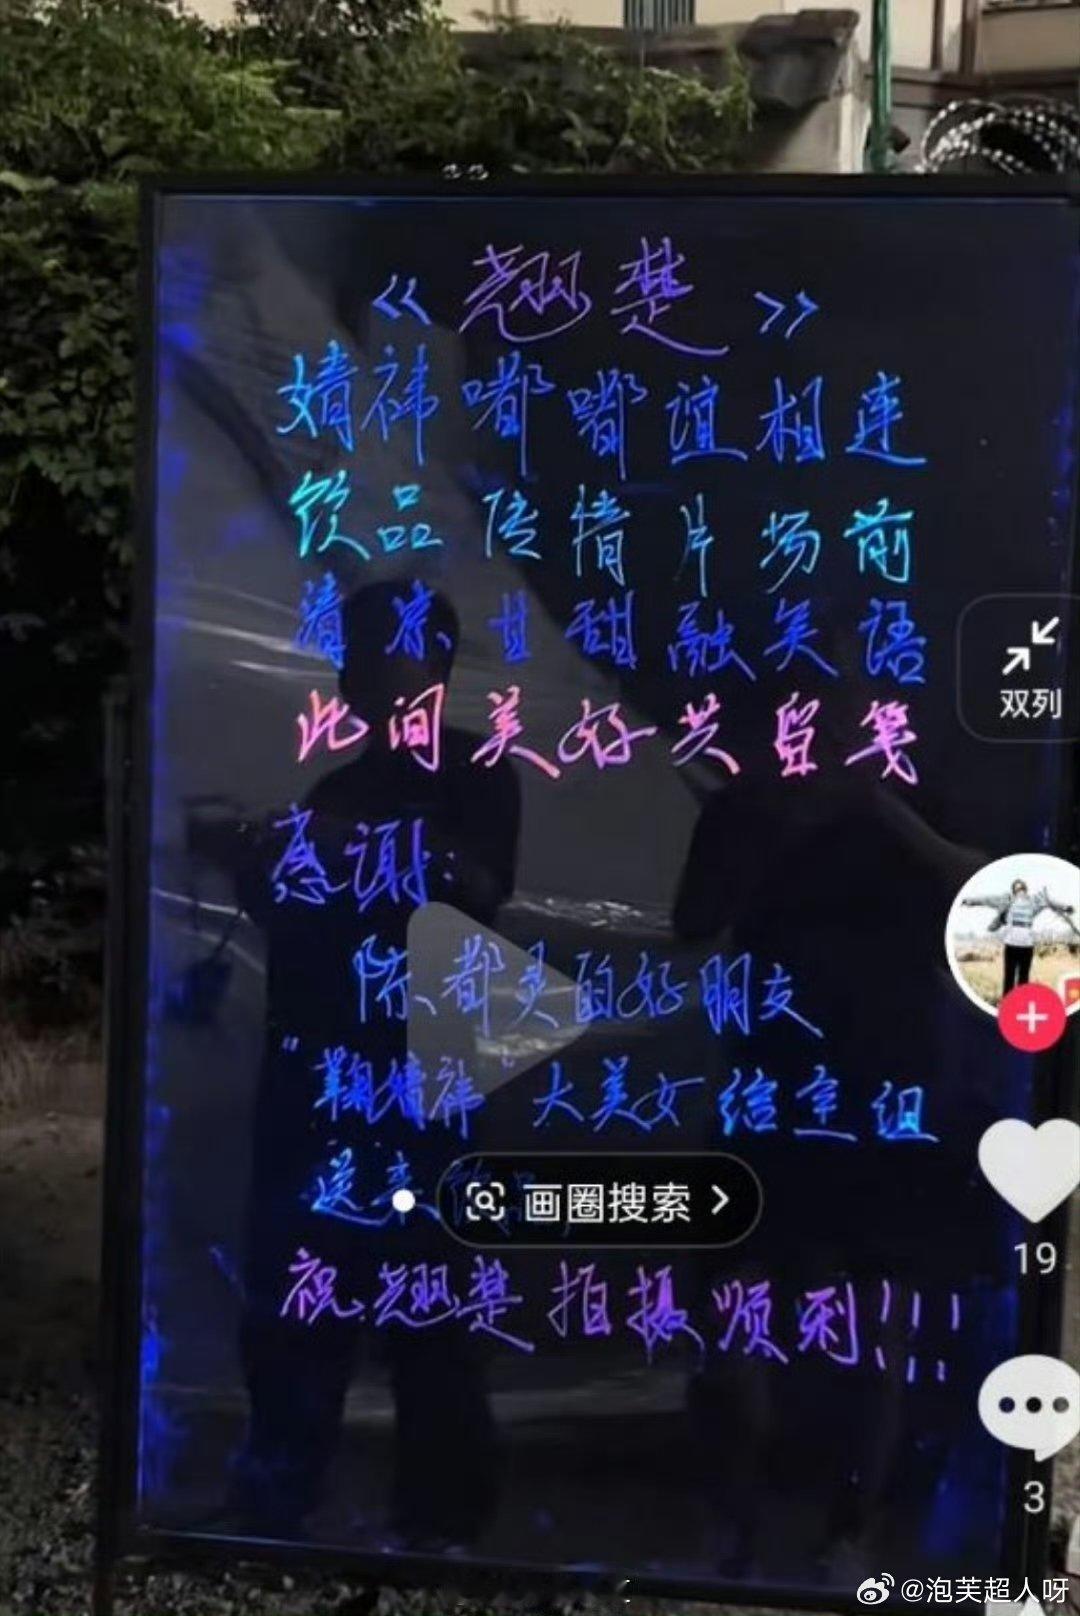 《翘楚》
婧祎嘟嘟谊相连
饮品传情片场前
清凉甘甜融笑语
此间美好共留笺
感谢:
陈都灵的好朋友
"鞠婧祎"大美女给全组
送来饮品
祝翘楚拍摄顺利!!!
双列
画圈搜索 >
19
3
@泡芙超人呀